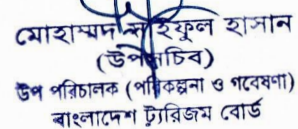 মোহাম্মদ সাইফুল হাসান
(উপসচিব)
উপ পরিচালক (পরিকল্পনা ও গবেষণা)
বাংলাদেশ ট্যুরিজম বোর্ড